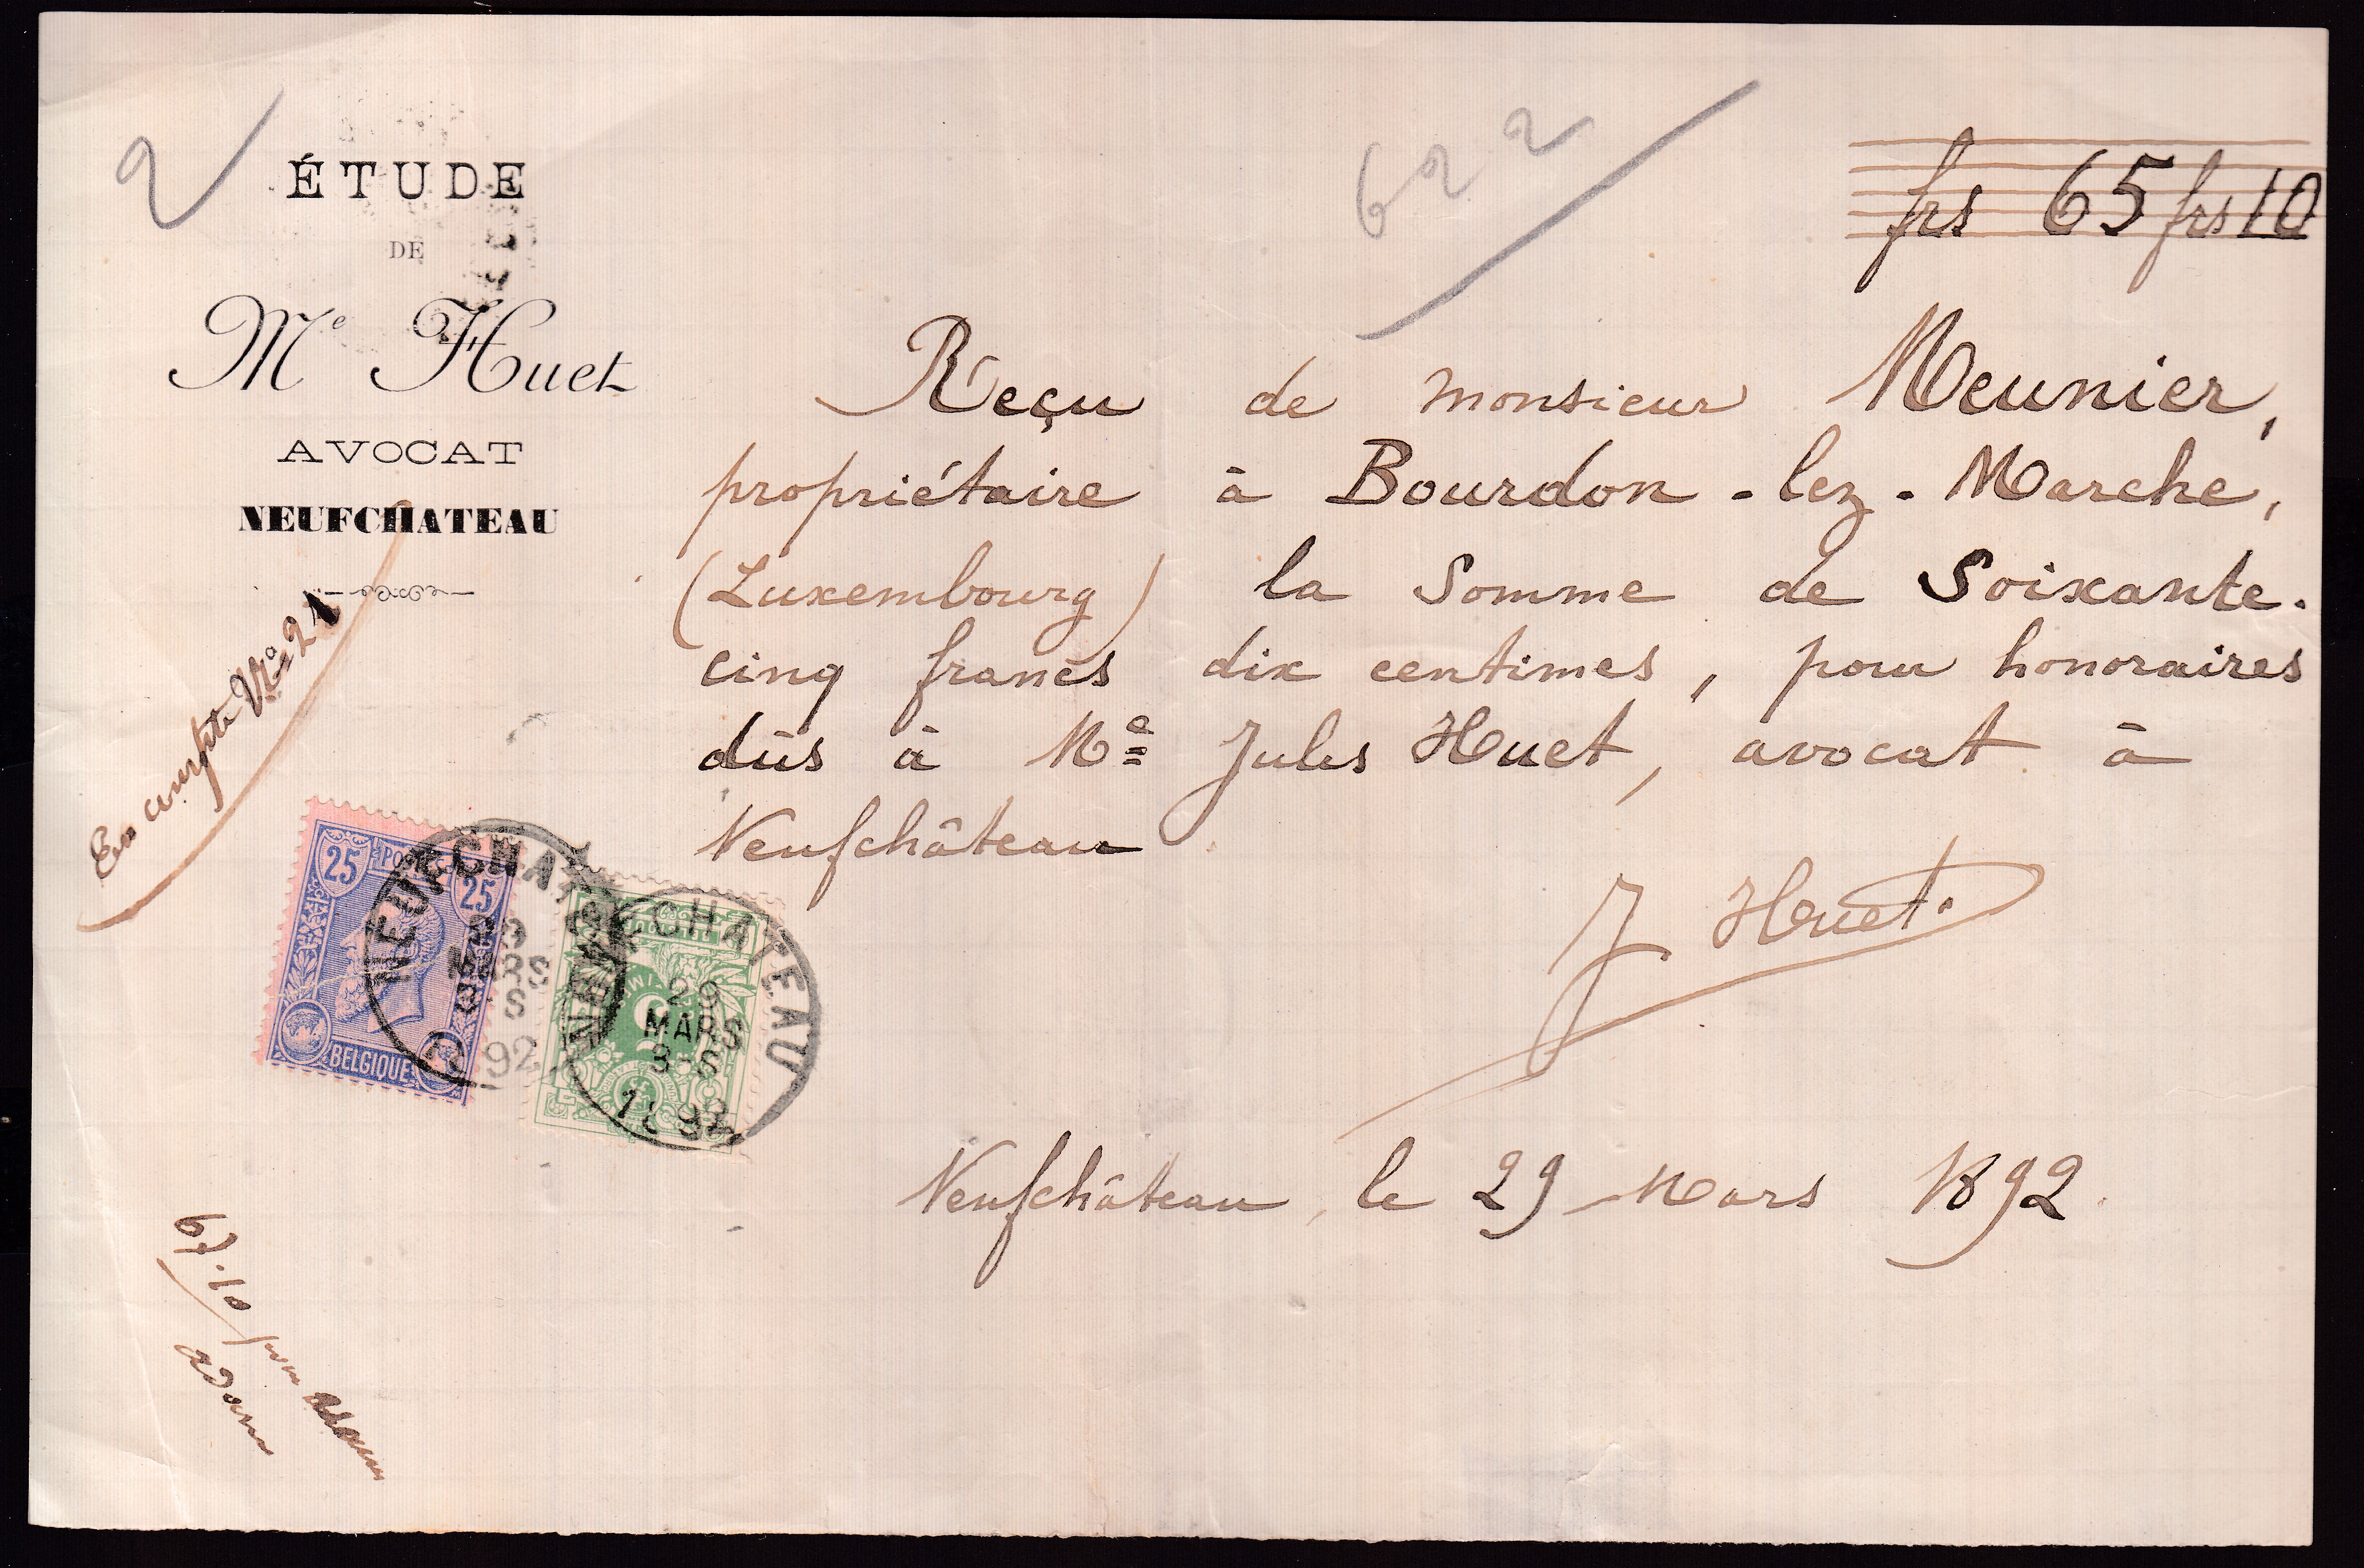 2
ÉTUDE
DE
Me Huet
AVOCAT
NEUFCHATEAU
622
frs 65 frs 10
Reçu de monsieur Meunier,
propriétaire à Bourdon-lez-Marche,
(Luxembourg) la Somme de Soixante-
cinq francs dix centimes, pour honoraires
dûs à Me Jules Huet, avocat à
Neufchâteau
J Huet.
Neufchâteau, le 29 Mars 1892.
En compte No 21
25 POSTES 25
BELGIQUE
NEUFCHATEAU
29
MARS
8-S
1892
NEUFCHATEAU
29
MARS
8-S
1892
67.10